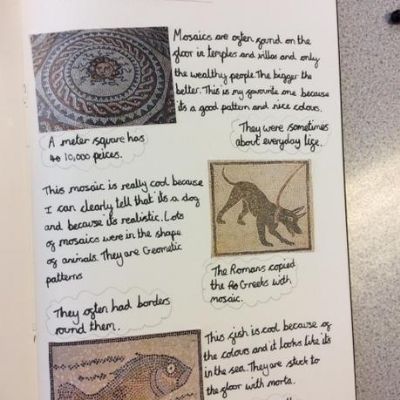 Mosaics are often found on the
floor in temples and villas and only
the wealthy people. The bigger the
better. This is my favourite one because
its a good pattern and nice colours.
A meter square has
10,000 peices.
They were sometimes
about everyday life.
This mosaic is really cool because
I can clearly tell that its a dog
and because its realistic. Lots
of mosaics were in the shape
of animals. They are Geometic
patterns
The Romans copied
the Greeks with
mosaic.
They often had borders
round them.
This fish is cool because of
the colours and it looks like its
in the sea. They are stuck to
the floor with morta.